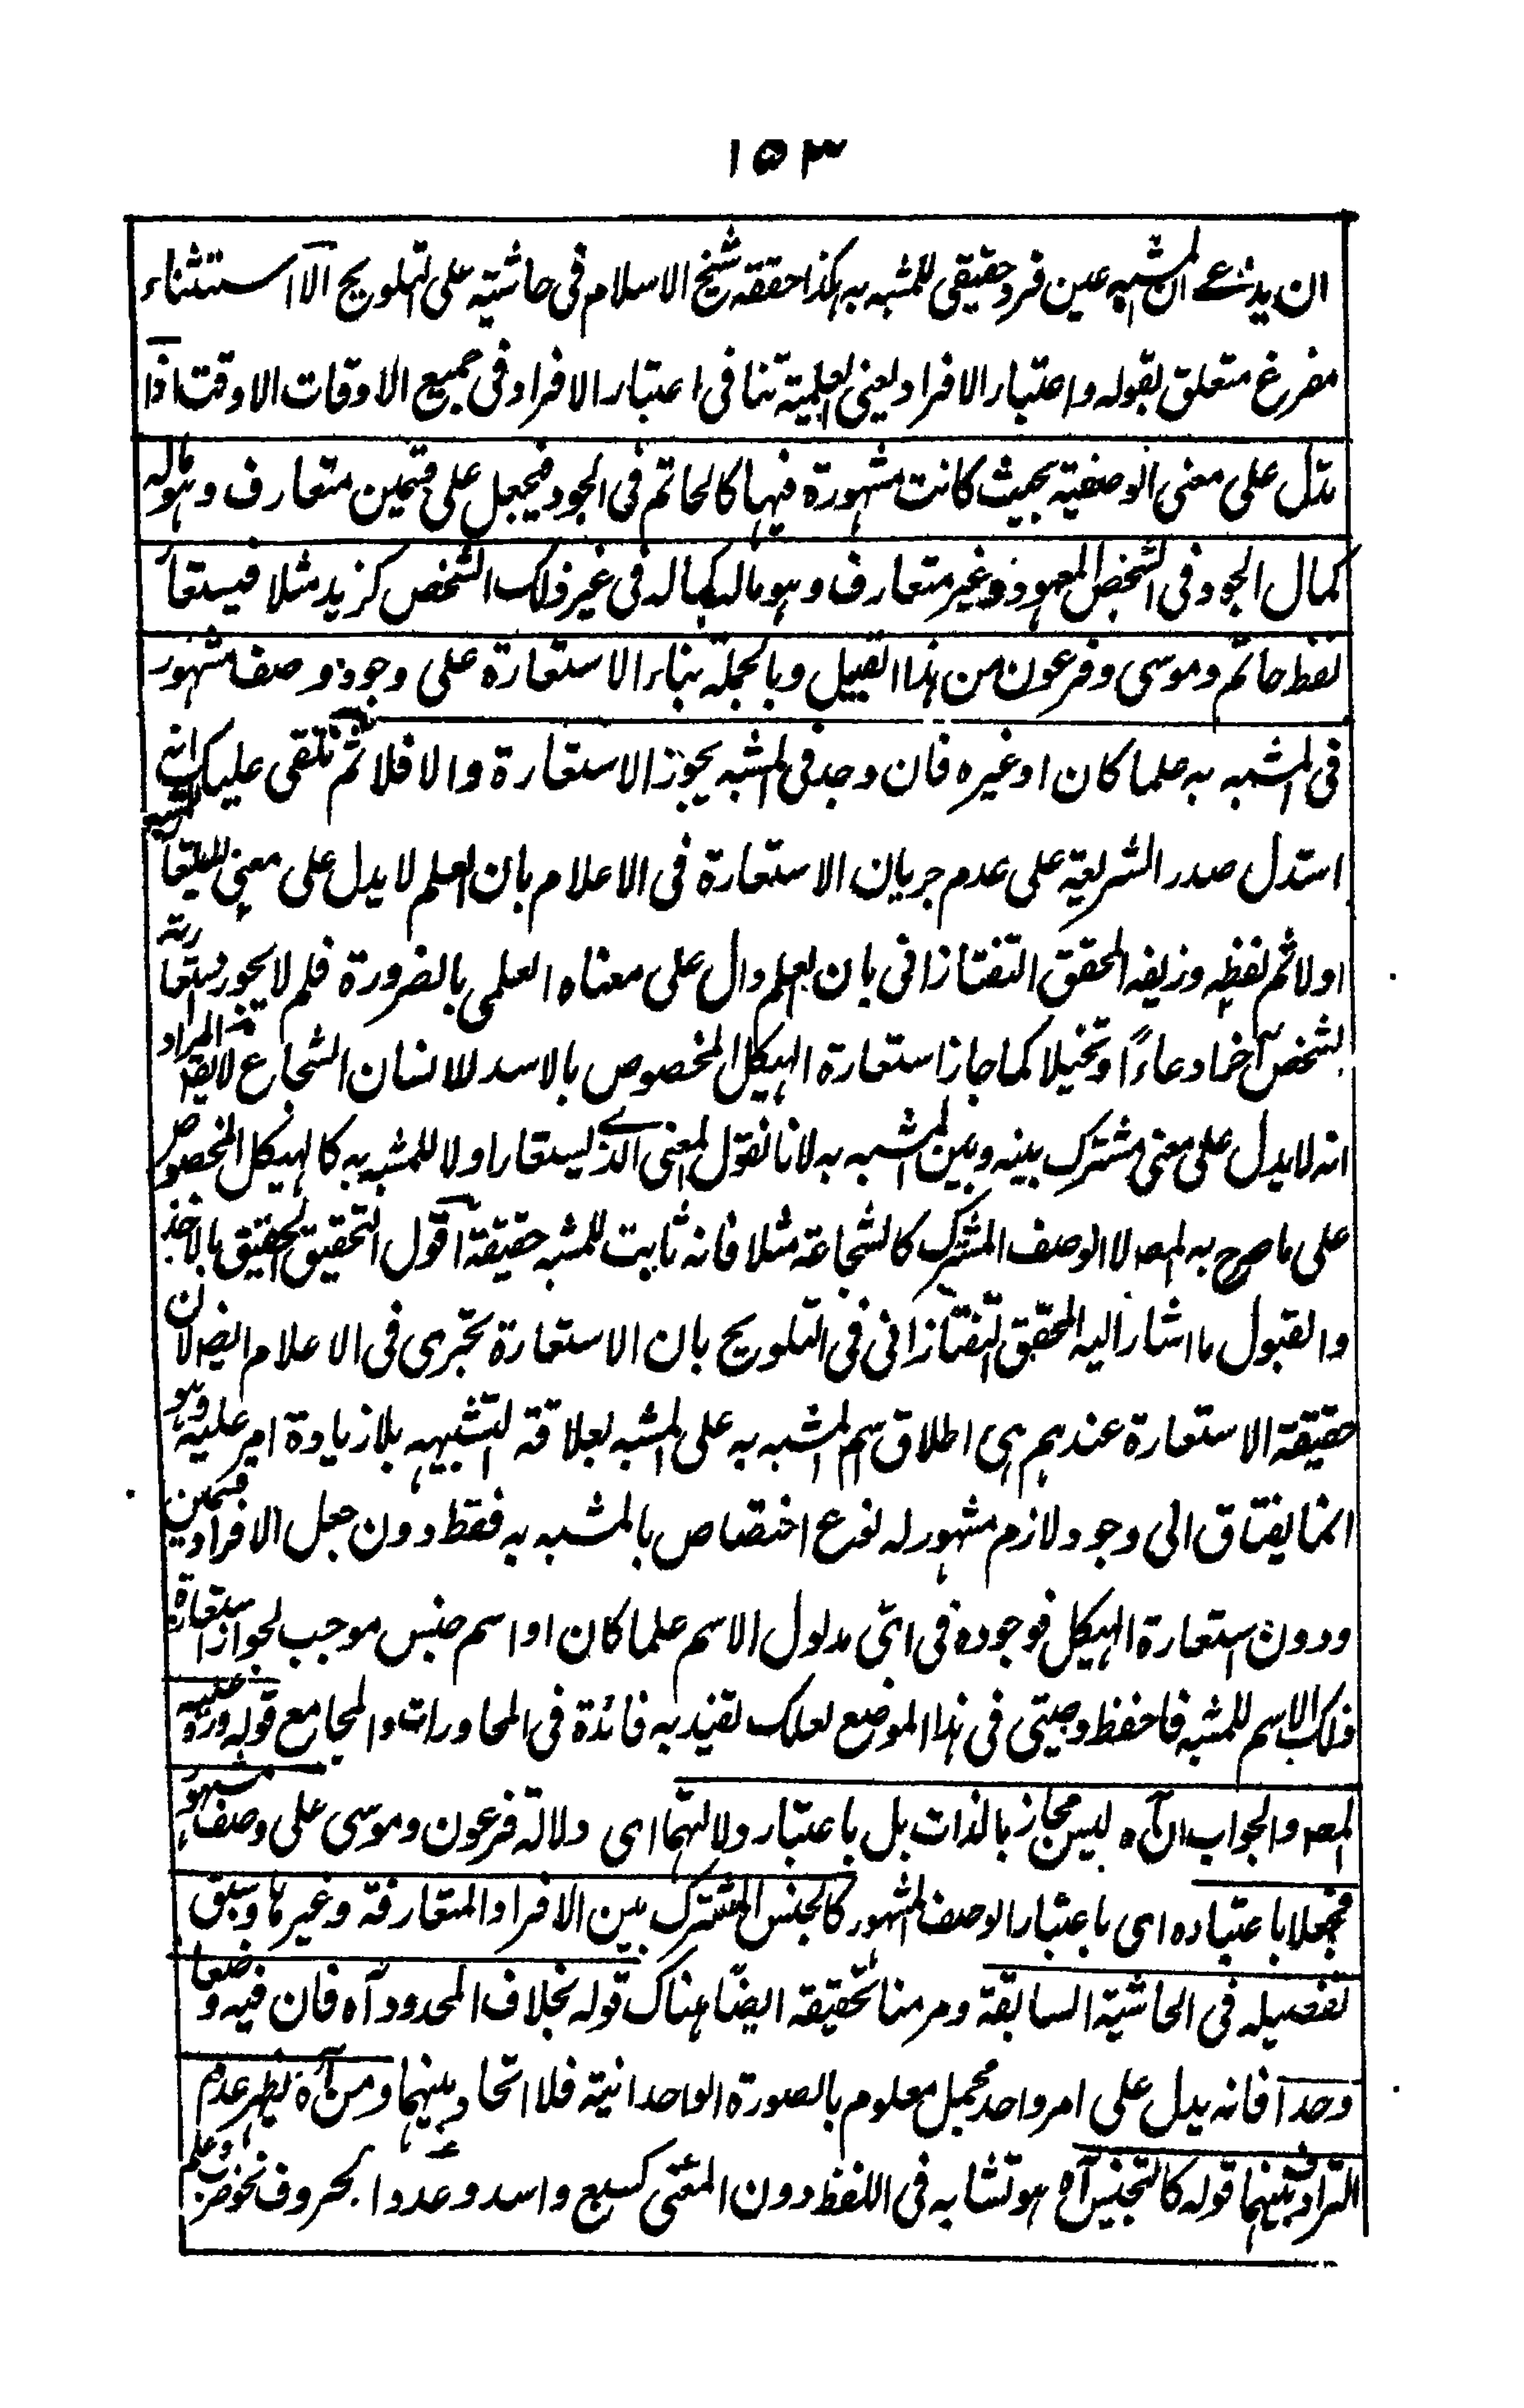 ١٥٣
ان يدعے ان المشبه عين فرد حقيقى للمشبه به هكذا حققه شيخ الاسلام فى حاشيته على التلويح الا استثناء
مفرغ متعلق بقوله واعتبار الافراد يعنى العلمية تنافى اعتبار الافراد فى جميع الاوقات الا وقت اذا
تدل على معنى الوصفية بحيث كانت مشهورة فيها كالحاتم فى الجود فيجعل على قسمين متعارف وهو ماله
كمال الجود فى الشخص المعهود وغير متعارف وهو ماله كماله فى غير ذلك الشخص كزيد مثلا فيستعار
لفظ حاتم وموسى وفرعون من هذا القبيل وبالجملة بناء الاستعارة على وجود وصف مشهور
فى المشبه به علما كان او غيره فان وجد فى المشبه يجوز الاستعارة والا فلا ثم نلقى عليك انه
استدل صدر الشريعة على عدم جريان الاستعارة فى الاعلام بان العلم لا يدل على معنى ليستعار
اولا ثم لفظه وزيفه المحقق التفتازانى بان العلم دال على معناه العلمى بالضرورة فلم لا يجوز استعارته
لشخص آخر ادعاءً او تخيلا كما جاز استعارة الهيكل المخصوص بالاسد للانسان الشجاع لايقر المراد
انه لا يدل على معنى مشترك بينه وبين المشبه به لانا نقول المعنى الذے يستعار اولا للمشبه به كالهيكل المخصوص
على ما صرح به المصـ لا الوصف المشترك كالشجاعة مثلا فانه ثابت للمشبه حقيقة اقول التحقيق الحقيق بالاخذ
والقبول ما اشار اليه المحقق التفتازانى فى التلويح بان الاستعارة تجرى فى الاعلام ايضا لان
حقيقة الاستعارة عندهم هى اطلاق اسم المشبه به على المشبه لعلاقة التشبيه بلا زيادة امر عليه وهو
انما يفتاق الى وجود لازم مشهور له نوع اختصاص بالمشبه به فقط دون جعل الافراد قسمين
ودون استعارة الهيكل فوجوده فى اىّ مدلول الاسم علما كان او اسم جنس موجب لجواز استعارة
ذلك الاسم للمشبه فاحفظ وصيتى فى هذا الموضع لعلك تفيد به فائدة فى المحاورات والمجامع قوله ورد عليه
المصـ والجواب ان آه ليس مجاز بالذات بل باعتبار دلالتهما اى دلالة فرعون وموسى على وصف مشهور
فجعلا باعتباره اى باعتبار الوصف المشهور كالجنس المشترك بين الافراد المتعارفة وغيرها وسبق
تفصيله فى الحاشية السابقة ومر منا تحقيقه ايضًا هناك قوله بخلاف المحدود آه فان فيه وضعا
وحدا فانه يدل على امر واحد مجمل معلوم بالصورة الواحدانية فلا اتحاد بينهما ومن آه يظهر عدم
الترادف بينهما قوله كالتجنيس آه هو تشابه فى اللفظ دون المعنى كسبع واسد وعددا لحروف نحو ضرب وعلم